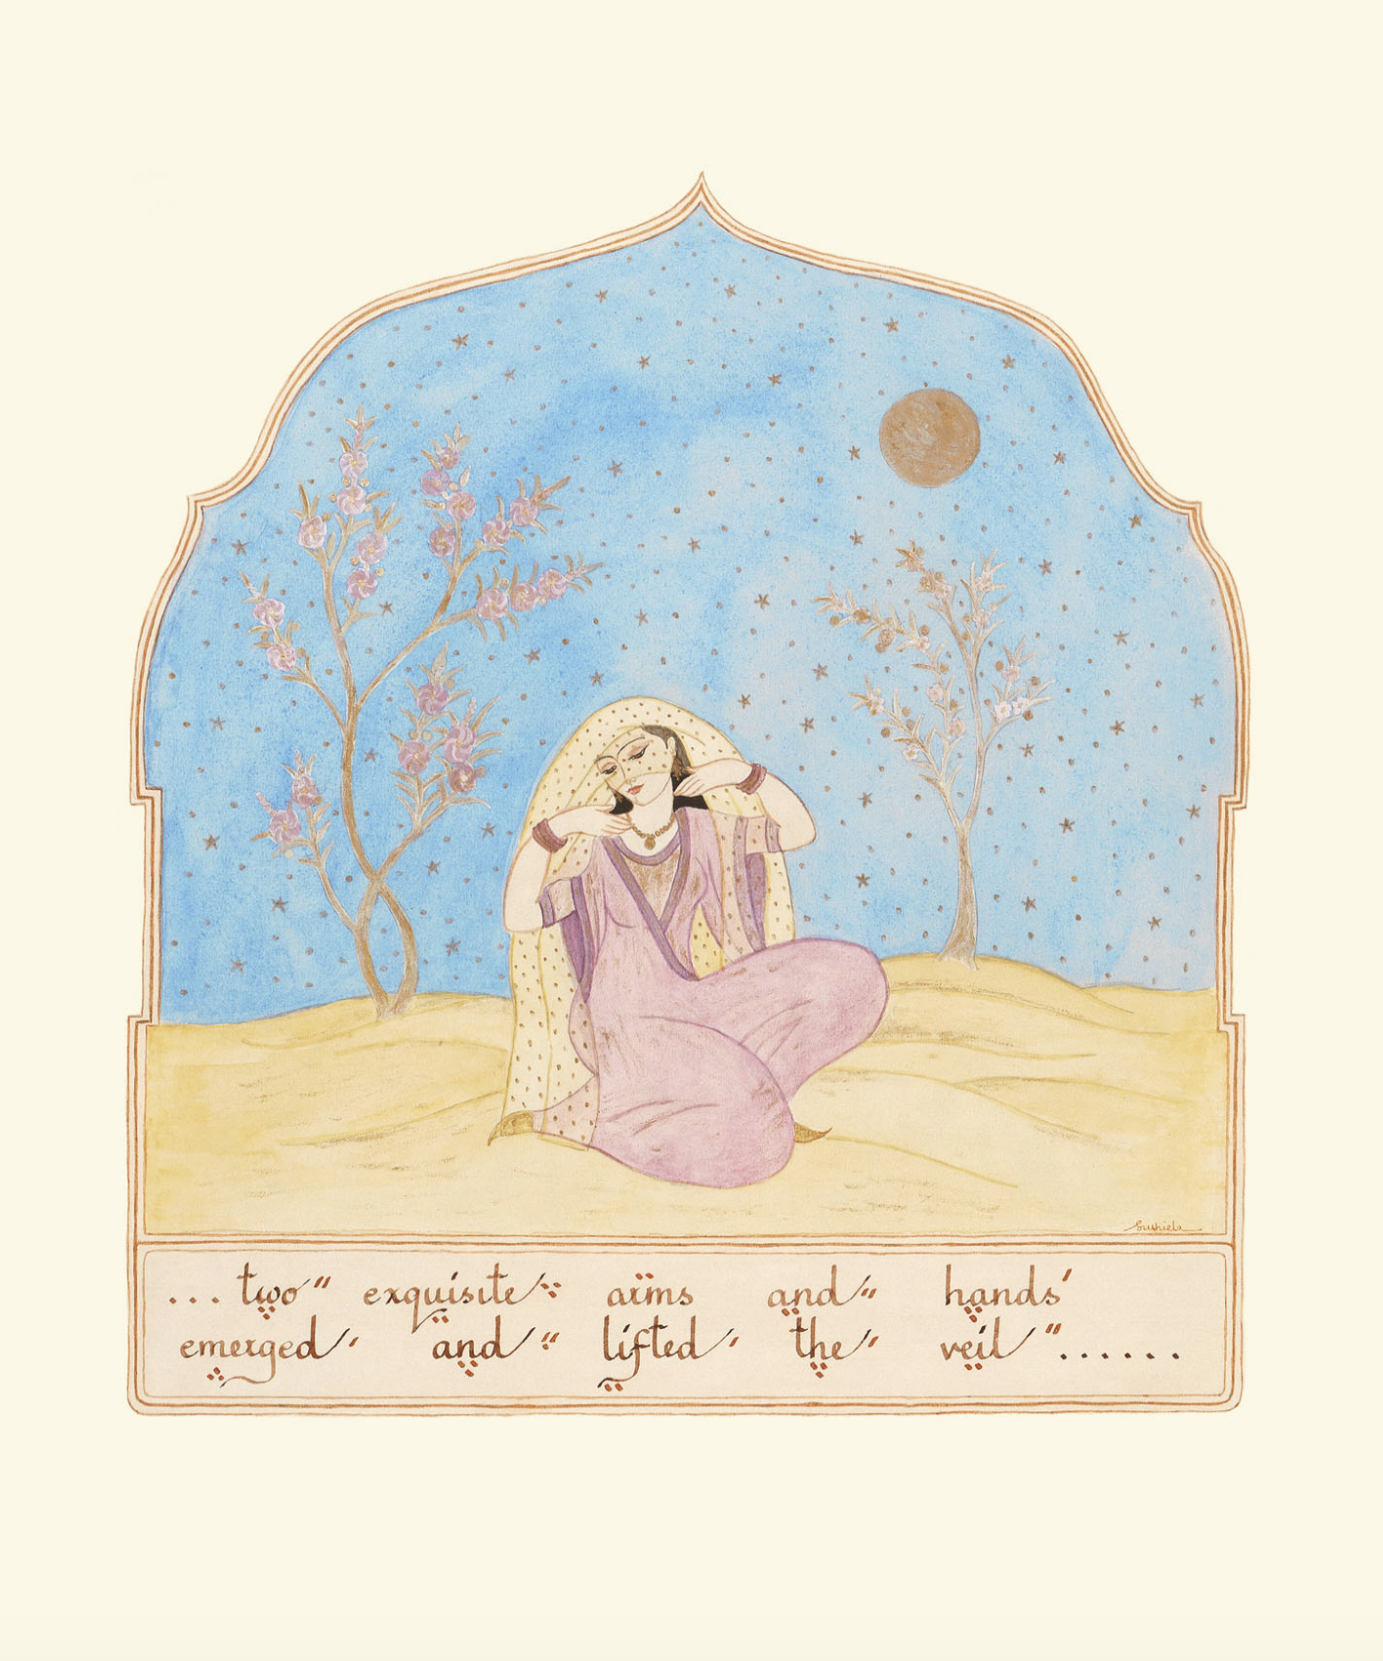 ... two exquisite arms and hands
emerged and lifted the veil ......